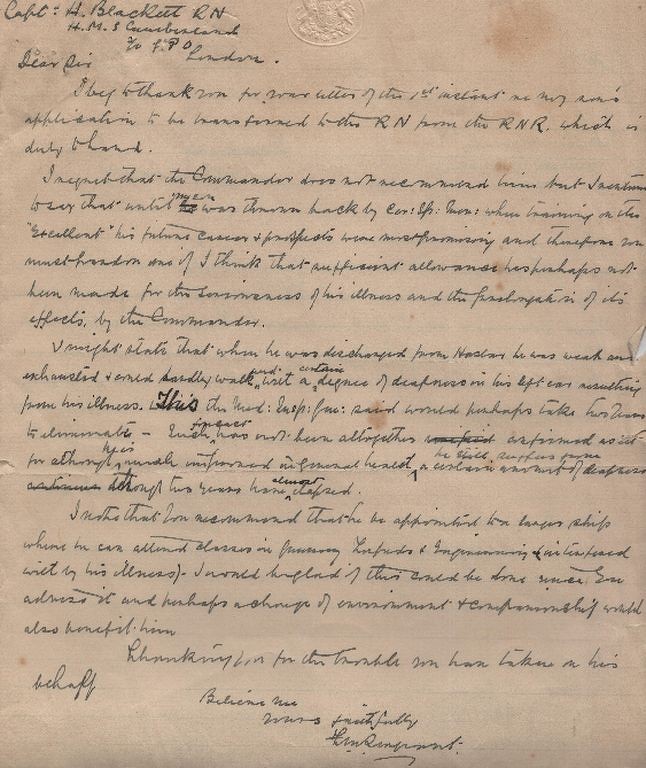 Capt: H. Blackett RN
H.M.S Cumberland
c/o G P O
London.
Dear Sir
I beg to thank you for your letter of the 1st instant re my son's
application to be transferred to the RN from the RNR. which is
duly to hand.
I regret that the Commander does not recommend him but I venture
to say that until my son was thrown back by Cer: Sp: Men: when training on the
"Excellent" his future career & prospects were most promising and therefore you
must pardon me if I think that sufficient allowance has perhaps not
been made for the seriousness of his illness and the prolongation of its
effects, by the Commander.
I might state that when he was discharged from Haslar he was weak and
exhausted & could hardly walk, and with a certain degree of deafness in his left ear resulting
from his illness. This the Med: Insp: Gen: said would perhaps take two years
to eliminate - Such has not been altogether as it
for although he is much improved in general health, he still suffers from a certain amount of deafness
though two years have almost elapsed.
I note that you recommend that he be appointed to a larger ship
where he can attend classes in Gunnery Torpedo & Engineering (interfered
with by his illness) - I would be glad if this could be done since you
advise it and perhaps a change of environment & companionship would
also benefit him
Thanking you for the trouble you have taken on his
behalf
Believe me
Yours faithfully